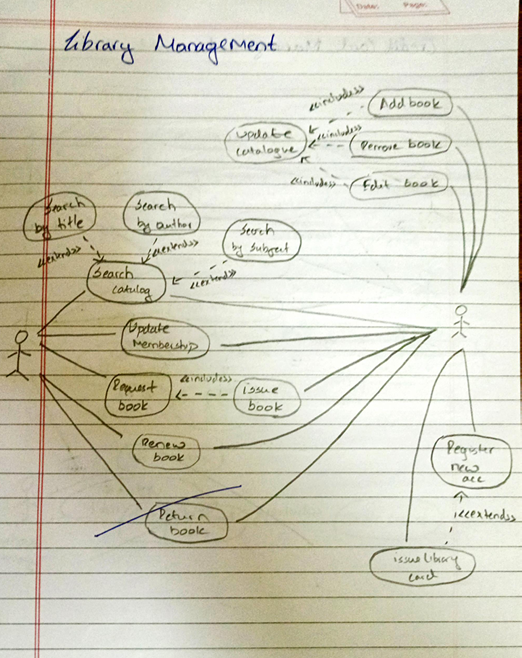 Date:
Page:
Library Management
<<includes>>
Add book
Update
catalogue
<<includes>>
Remove book
<<includes>>
Edit book
Search
by title
Search
by author
Search
by Subject
<<extends>>
<<extends>>
<<extends>>
Search
catalog
Update
Membership
Request
book
<<includes>>
issue
book
Renew
book
Register
new
acc
Return
book
<<extends>>
issue library
card